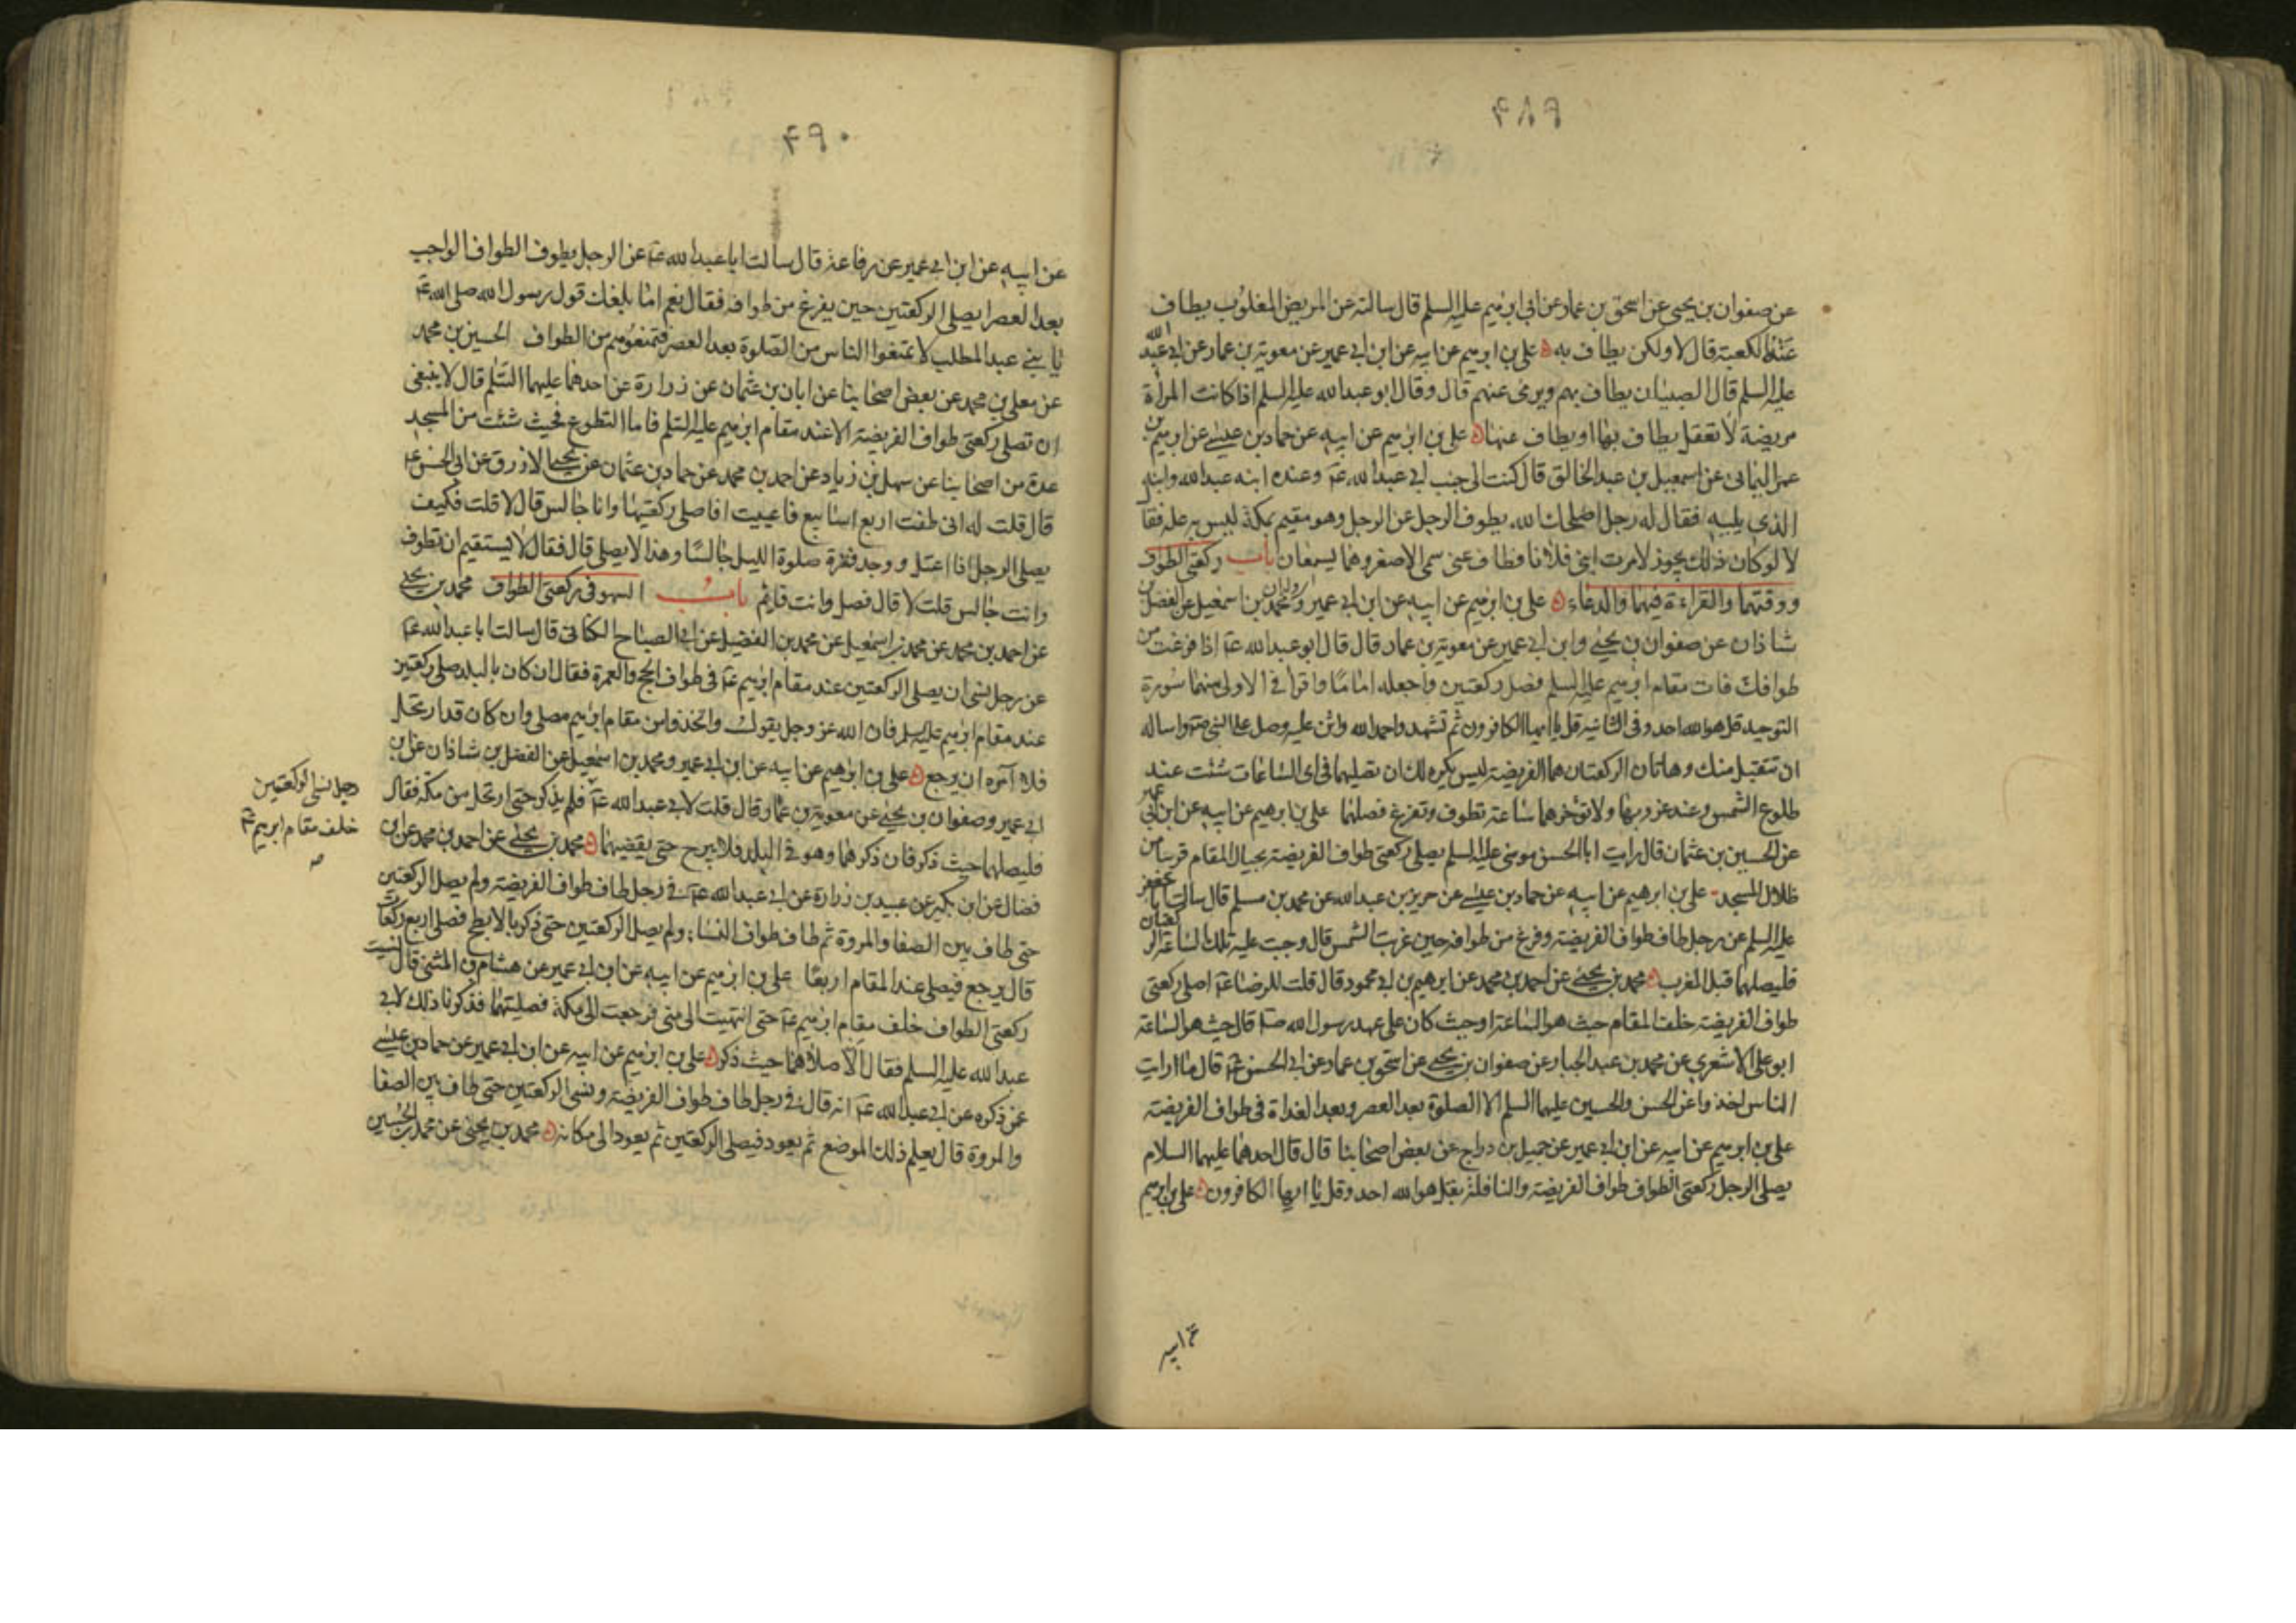 ۴۸۹
عن صفوان بن يحيى عن اسحق بن عمار عن ابي ابرهيم عليه السلم قال سالته عن المريض المغلوب يطاف
عنه بالكعبة قال لا ولكن يطاف به علي بن ابرهيم عن ابيه عن ابن ابي عمير عن معوية بن عمار عن ابي عبد الله
عليه السلم قال الصبيان يطاف بهم ويرمى عنهم قال وقال ابو عبد الله عليه السلم اذا كانت المرأة
مريضة لا تعقل يطاف بها او يطاف عنها علي بن ابرهيم عن ابيه عن حماد بن عيسى عن ابرهيم بن
عمر اليماني عن اسمعيل بن عبد الخالق قال كنت الى جنب ابي عبد الله ع وعنده ابنه عبد الله وابنه
الذي يليه فقال له رجل اصلحك الله يطوف الرجل عن الرجل وهو مقيم بمكة ليس به علة فقا
لا لو كان ذلك يجوز لامرت ابني فلانا فطاف عني سمى الاصغر وهما يسمعان باب ركعتي الطواف
ووقتهما والقراءة فيهما والدعاء علي بن ابرهيم عن ابيه عن ابن ابي عمير ومحمد بن اسمعيل عن الفضل بن
شاذان عن صفوان بن يحيى وابن ابي عمير عن معوية بن عمار قال قال ابو عبد الله ع اذا فرغت من
طوافك فات مقام ابرهيم عليه السلم فصل ركعتين واجعله اماما واقرا في الاولى منهما سورة
التوحيد قل هو الله احد وفي الثانية قل يا ايها الكافرون ثم تشهد واحمد الله واثن عليه وصل على النبي ص واساله
ان يتقبل منك وهاتان الركعتان هما الفريضة ليس يكره لك ان تصليهما في اى الساعات شئت عند
طلوع الشمس وعند غروبها ولا تؤخرهما ساعة تطوف وتفرغ فصلهما علي بن ابرهيم عن ابيه عن ابن ابي عمير
عن الحسين بن عثمان قال رايت ابا الحسن موسى عليه السلم يصلي ركعتي طواف الفريضة بحيال المقام قريبا من
ظلال المسجد علي بن ابرهيم عن ابيه عن حماد بن عيسى عن حريز بن عبد الله عن محمد بن مسلم قال سالت ابا جعفر
عليه السلم عن رجل طاف طواف الفريضة وفرغ من طوافه حين غربت الشمس قال وجبت عليه تلك الساعة الركعتان
فليصلهما قبل المغرب محمد بن يحيى عن احمد بن محمد عن ابرهيم بن ابي محمود قال قلت للرضا ع اصلي ركعتي
طواف الفريضة خلف المقام حيث هو الساعة او حيث كان على عهد رسول الله ص قال حيث هو الساعة
ابو علي الاشعري عن محمد بن عبد الجبار عن صفوان بن يحيى عن اسحق بن عمار عن ابي الحسن ع قال ما رايت
الناس اخذوا عن الحسن والحسين عليهما السلم الا الصلوة بعد العصر وبعد الغداة في طواف الفريضة
علي بن ابرهيم عن ابيه عن ابن ابي عمير عن جميل بن دراج عن بعض اصحابنا قال قال احدهما عليهما السلام
يصلي الرجل ركعتي الطواف طواف الفريضة والنافلة بقل هو الله احد وقل يا ايها الكافرون علي بن ابرهيم
عن ابيه
۴۹۰
عن ابيه عن ابن ابي عمير عن رفاعة قال سالت ابا عبد الله ع عن الرجل يطوف الطواف الواجب
بعد العصر ايصلي الركعتين حين يفرغ من طوافه فقال نعم اما بلغك قول رسول الله صلى الله ع
يا بني عبد المطلب لا تمنعوا الناس من الصلوة بعد العصر فتمنعوهم من الطواف الحسين بن محمد
عن معلى بن محمد عن بعض اصحابنا عن ابان بن عثمان عن زرارة عن احدهما عليهما السلم قال لا ينبغي
ان تصلي ركعتي طواف الفريضة الا عند مقام ابرهيم عليه السلم فاما التطوع فحيث شئت من المسجد
عدة من اصحابنا عن سهل بن زياد عن احمد بن محمد عن حماد بن عثمان عن يحيى الازرق عن ابي الحسن ع
قال قلت له اني طفت اربع اسابيع فاعييت افاصلي ركعتيها وانا جالس قال لا قلت فكيف
يصلي الرجل اذا اعتل ووجد فترة صلوة الليل جالسا وهذا لا يصلي قال فقال لا يستقيم ان تطوف
وانت جالس قلت لا قال فصل وانت قائم باب السهو في ركعتي الطواف محمد بن يحيى
عن احمد بن محمد عن محمد بن اسمعيل عن محمد بن الفضيل عن ابي الصباح الكناني قال سالت ابا عبد الله ع
عن رجل نسى ان يصلي الركعتين عند مقام ابرهيم ع في طواف الحج والعمرة فقال ان كان بالبلد صلى ركعتين
عند مقام ابرهيم عليه السلم فان الله عز وجل يقول واتخذوا من مقام ابرهيم مصلى وان كان قد ارتحل
فلا آمره ان يرجع علي بن ابرهيم عن ابيه عن ابن ابي عمير ومحمد بن اسمعيل عن الفضل بن شاذان عن ابن
ابي عمير وصفوان بن يحيى عن معوية بن عمار قال قلت لابي عبد الله ع فلم يذكر حتى ارتحل من مكة فقال
فليصلهما حيث ذكر فان ذكرهما وهو في البلد فلا يبرح حتى يقضيهما محمد بن يحيى عن احمد بن محمد عن ابن
فضال عن ابن بكير عن عبيد بن زرارة عن ابي عبد الله ع في رجل طاف طواف الفريضة ولم يصل الركعتين
حتى طاف بين الصفا والمروة ثم طاف طواف النساء ولم يصل الركعتين حتى ذكر بالابطح فصلى اربع ركعات
قال يرجع فيصلي عند المقام اربعا علي بن ابرهيم عن ابيه عن ابن ابي عمير عن هشام بن المثنى قال نسيت
ركعتي الطواف خلف مقام ابرهيم ع حتى انتهيت الى منى فرجعت الى مكة فصليتهما فذكرنا ذلك لابي
عبد الله عليه السلم فقال الا صلاهما حيث ذكر علي بن ابرهيم عن ابيه عن ابن ابي عمير عن حماد بن عيسى
عمن ذكره عن ابي عبد الله ع انه قال في رجل طاف طواف الفريضة ونسى الركعتين حتى طاف بين الصفا
والمروة قال يعلم ذلك الموضع ثم يعود فيصلي الركعتين ثم يعود الى مكانه محمد بن يحيى عن محمد بن الحسين
رجل نسى الركعتين
خلف مقام ابرهيم ع